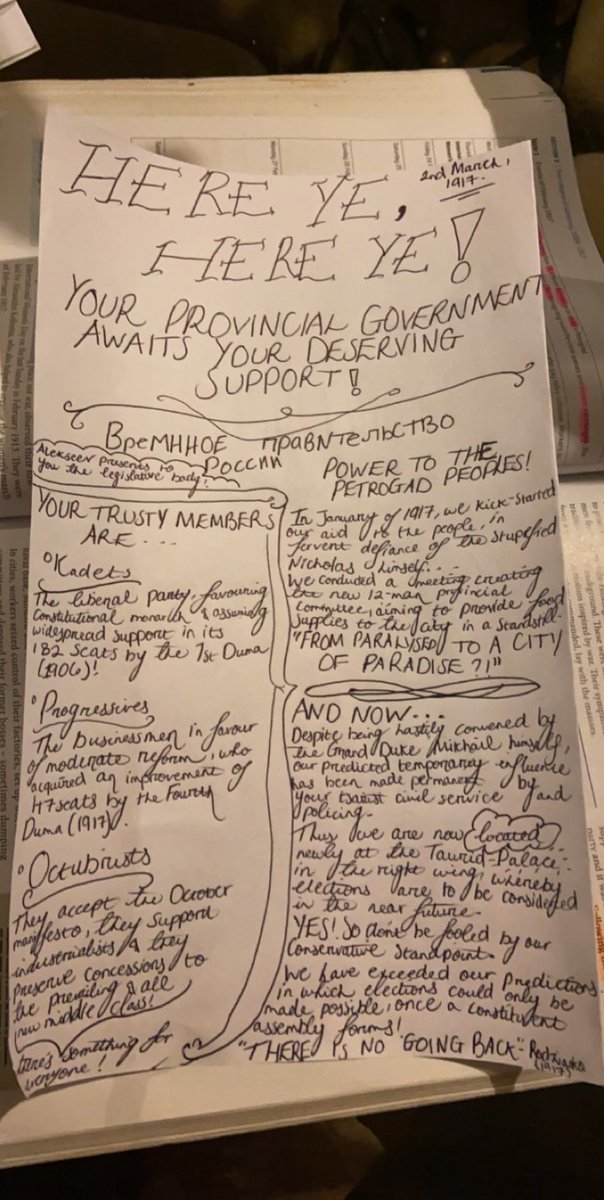 HERE YE,
2nd March,
1917.
HERE YE!
YOUR PROVINCIAL GOVERNMENT
AWAITS YOUR DESERVING
SUPPORT!
ВреМННое правNтельство
России
Alekseev presents to
you the legislative body!
YOUR TRUSTY MEMBERS
ARE...
Kadets
The liberal party, favouring
constitutional monarch & assuming
widespread support in its
182 seats by the 1st Duma
(1906)!
Progressives
The businessmen in favour
of moderate reform, who
acquired an improvement of
47 seats by the Fourth
Duma (1917).
Octubrists
They accept the October
manifesto, they support
industrialists & they
preserve concessions to
the prevailing & all
new middle class!
there's something for
everyone!
POWER TO THE
PETROGAD PEOPLES!
In January of 1917, we kick-started
our aid to the people, in
fervent defiance of the stupefied
Nicholas himself...
We conducted a meeting creating
the new 12-man provincial
committee, aiming to provide food
supplies to the city in a standstill-
"FROM PARALYSED TO A CITY
OF PARADISE?!"
AND NOW...
Despite being hastily convened by
the Grand Duke Mikhail himself,
our predicted temporary influence
has been made permanent by
your tsarist civil service and
policing.
Thus we are now located
newly at the Taurid-Palace
in the right wing, whereby
elections are to be considered
in the near future.
YES! So done be fooled by our
conservative standpoint.
We have exceeded our predictions
in which elections could only be
made possible, once a constituent
assembly forms!
"THERE IS NO GOING BACK"- Rodzianko
(1917)